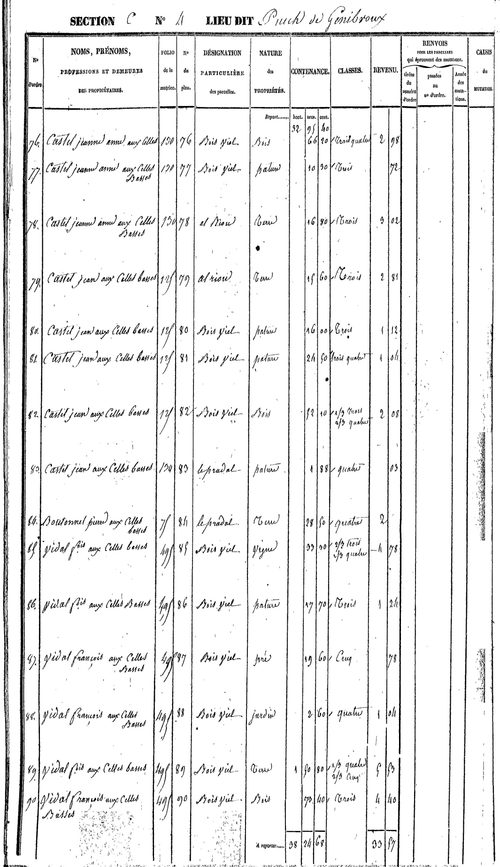 SECTION C N° 4 LIEU DIT Puech de Génibroux
N° d'ordre. NOMS, PRÉNOMS, PROFESSIONS ET DEMEURES DES PROPRIÉTAIRES. FOLIO de la matrice. N° du plan. DÉSIGNATION PARTICULIÈRE des parcelles. NATURE des PROPRIÉTÉS. CONTENANCE. CLASSES. REVENU. RENVOIS CAUSE DU MUTATION.
hect. ares. cent.
Report 32 95 40
76. Castel jeanne anne aux Celles 130 76 Bois viel Bois 66 20 Trois quatre 2 98
77. Castel jeanne anne aux Celles Basses 130 77 Bois viel pature 20 30 Trois 72
78. Castel jeanne anne aux Celles Basses 130 78 al Rion Terre 16 80 Trois 3 02
79. Castel jean aux Celles basses 125 79 al rion Terre 15 60 Trois 2 81
80. Castel jean aux Celles basses 125 80 Bois viel pature 16 00 Trois 1 12
81. Castel jean aux Celles basses 125 81 Bois viel pature 24 50 trois quatre 1 04
82. Castel jean aux Celles basses 125 82 Bois viel Bois 52 10 2/3 trois 2/3 quatre 2 08
83. Castel jean aux Celles basses 130 83 le pradal pature 1 88 quatre 03
84. pierre aux Celles basses 75 84 le pradal Terre 28 50 quatre 2
85. Vidal fcois aux Celles basses 495 85 Bois viel Vigne 33 20 2/3 trois 2/3 quatre 4 78
86. Vidal fcois aux Celles Basses 495 86 Bois viel pature 17 70 Trois 1 24
87. Vidal françois aux Celles Basses 495 87 Bois viel pré 19 60 Cinq 78
88. Vidal françois aux Celles Basses 495 88 Bois viel jardin 2 60 quatre 1 04
89. Vidal fcois aux Celles basses 495 89 Bois viel Terre 1 50 80 2/3 quatre 2/3 Cinq 5 53
90. Vidal françois aux Celles Basses 495 90 Bois viel Bois 73 40 Trois 4 40
A reporter 38 24 68 33 57